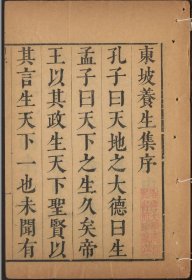 東坡養生集序
孔子曰天地之大德曰生
孟子曰天下之生久矣帝
王以其政生天下聖賢以
其言生天下一也未聞有